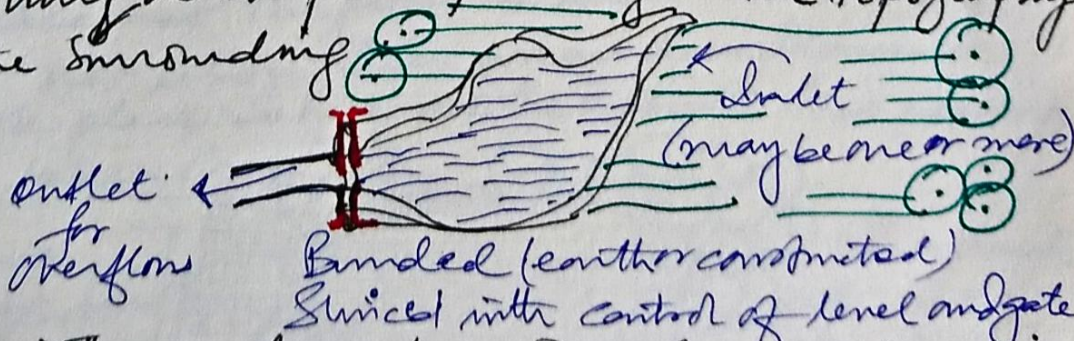 surrounding
Inlet
(may be one or more)
outlet
for
overflow
Bunded (earth or constructed)
Sluiced with control of level and gate